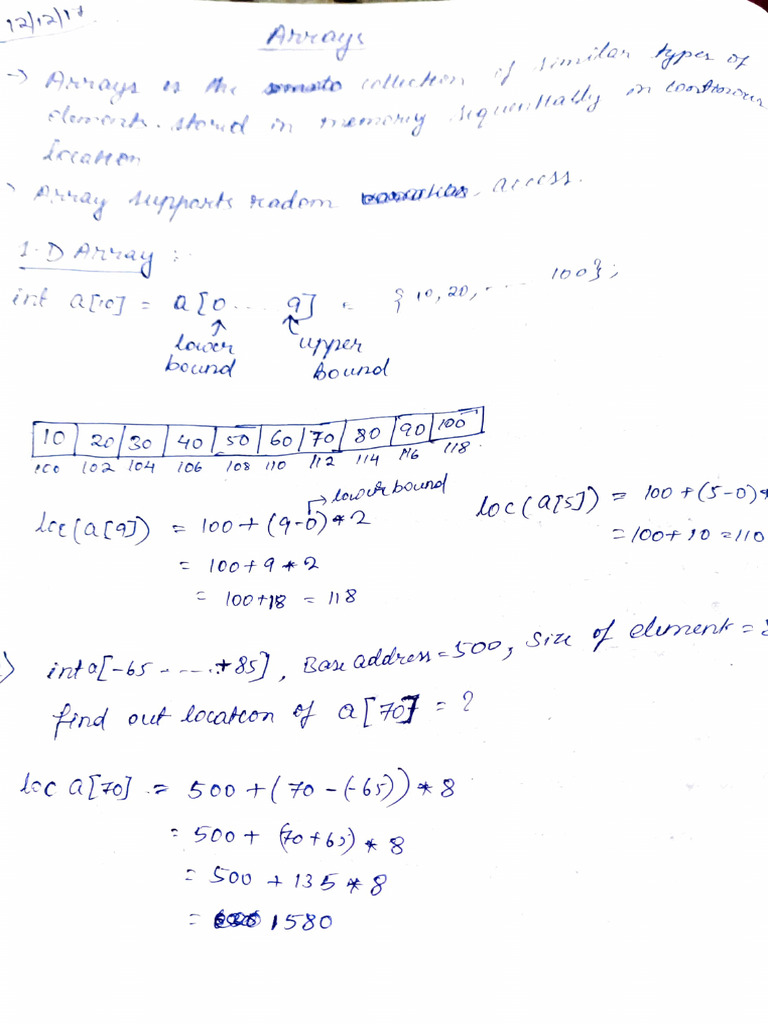 12/12/17
Arrays
→ Arrays is the collection of similar types of
elements. stored in memory sequentially in
location
Array supports radom access.
1-D Array :
int a[10] = a[0 ... 9] = {10,20, ..... 100};
lower bound upper bound
10 20 30 40 50 60 70 80 90 100
100 102 104 106 108 110 112 114 116 118
→ lower bound
loc(a[9]) = 100 + (9-0) * 2
= 100 + 9 * 2
= 100+18 = 118
loc(a[5]) = 100 + (5-0) *
= 100 + 10 = 110
int a[-65 - ---- +85], Base address = 500, Size of element =
find out location of a[70] = ?
loc a[70] = 500 + (70 - (-65)) * 8
= 500 + (70+65) * 8
= 500 + 135 * 8
= 1580